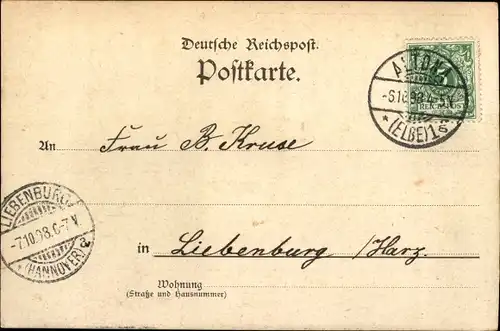 Deutsche Reichspost.
Postkarte.
ALTONA
-6.10.98.
* (ELBE) 1 s
REICHSPOST
An Frau B. Kruse
LIEBENBURG
-7.10.98.6-7V.
(HANNOVER) a
in Liebenburg /Harz.
Wohnung
(Straße und Hausnummer)